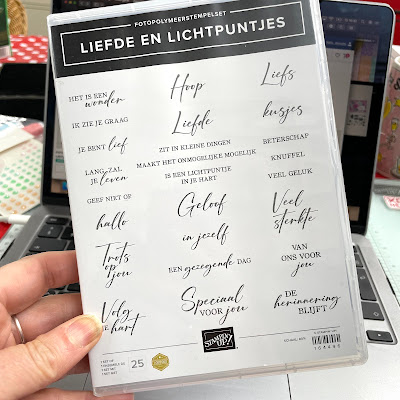 FOTOPOLYMEERSTEMPELSET
LIEFDE EN LICHTPUNTJES
HET IS EEN
wonder
IK ZIE JE GRAAG
JE BENT lief
LANG ZAL
JE leven
GEEF NIET OP
hallo
Trots
op
jou
Volg
JE hart
Hoop
Liefde
ZIT IN KLEINE DINGEN
MAAKT HET ONMOGELIJKE MOGELIJK
IS EEN LICHTPUNTJE
IN JE HART
Geloof
in jezelf
EEN gezegende DAG
Speciaal
VOOR jou
Liefs
kusjes
BETERSCHAP
KNUFFEL
VEEL GELUK
Veel
sterkte
VAN
ONS VOOR
jou
DE
herinnering
BLIJFT
25
STAMPIN'
UP!